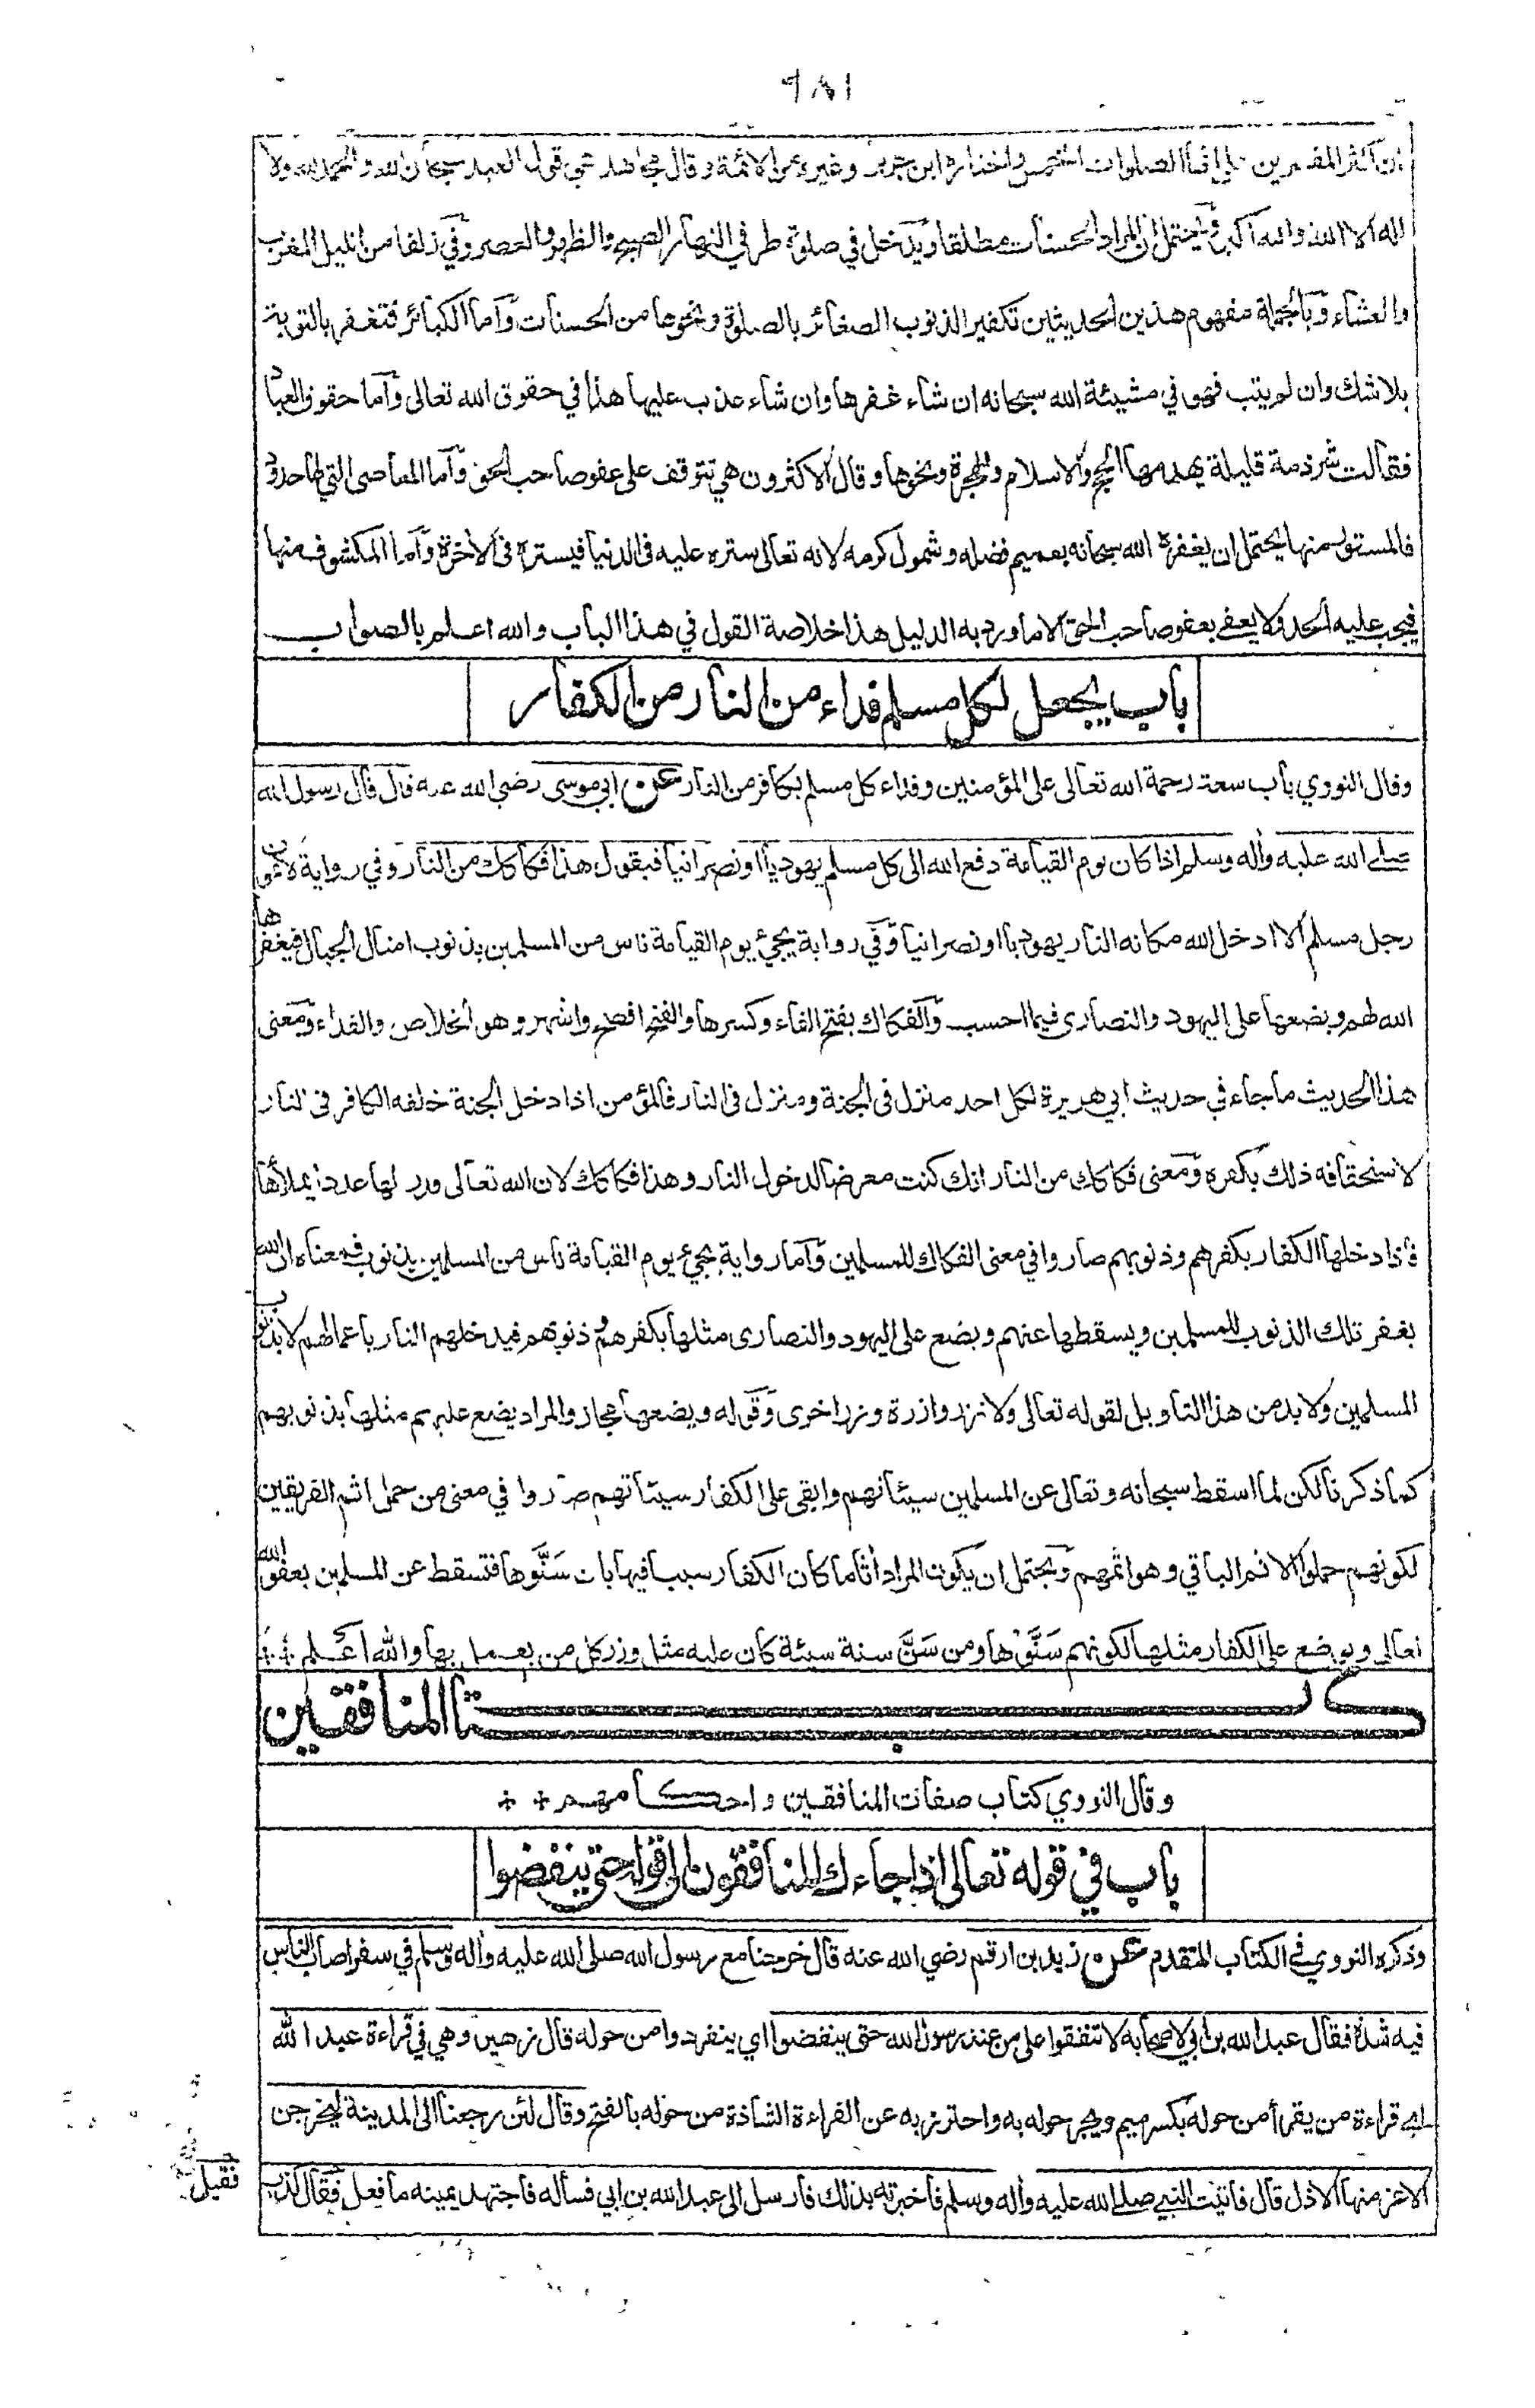 ٩٨١
ان اكثر المفسرين على انها الصلوات الخمس واختاره ابن جرير وغيره من الائمة وقال مجاهد هي قول العبد سبحان الله والحمد لله ولا
اله الا الله والله اكبر ويحتمل ان المراد الحسنات مطلقا ويدخل في صلوة طرفي النهار الصبح والظهر والعصر وفي زلفا من الليل المغرب
والعشاء وبالجملة مفهوم هذين الحديثين تكفير الذنوب الصغائر بالصلوة ونحوها من الحسنات وأما الكبائر فتغفر بالتوبة
بلا شك وان لم يتب فهو في مشيئة الله سبحانه ان شاء غفرها وان شاء عذب عليها هذا في حقوق الله تعالى وأما حقوق العباد
فقالت شرذمة قليلة يهدمها الحج والاسلام والهجرة ونحوها وقال الاكثرون هي تتوقف على عفو صاحب الحق وأما المعاصي التي لها حدود
فالمستور منها يحتمل ان يغفره الله سبحانه بعميم فضله وشمول كرمه لانه تعالى ستره عليه في الدنيا فيستره في الأخرة وأما المكشوف منها
فيجب عليه الحد ولا يعفى بعفو صاحب الحق الا ما ورد به الدليل هذا خلاصة القول في هذا الباب والله اعلم بالصواب
باب يجعل لكل مسلم فداء من النار من الكفار
وقال النووي باب سعة رحمة الله تعالى على المؤمنين وفداء كل مسلم بكافر من النار عن ابي موسى رضي الله عنه قال قال رسول الله
صلى الله عليه وأله وسلم اذا كان يوم القيامة دفع الله الى كل مسلم يهوديا او نصرانيا فيقول هذا فكاكك من النار وفي رواية لا يموت
رجل مسلم الا ادخل الله مكانه النار يهوديا او نصرانيا وفي رواية يجئ يوم القيامة ناس من المسلمين بذنوب امثال الجبال فيغفرها
الله لهم ويضعها على اليهود والنصارى فيما احسب والفكاك بفتح الفاء وكسرها والفتح افصح واشهر وهو الخلاص والفداء ومعنى
هذا الحديث ما جاء في حديث ابي هريرة لكل احد منزل في الجنة ومنزل في النار فالمؤمن اذا دخل الجنة خلفه الكافر في النار
لاستحقاقه ذلك بكفره ومعنى فكاكك من النار انك كنت معرضا لدخول النار وهذا فكاكك لان الله تعالى قدر لها عددا يملأها
فاذا دخلها الكفار بكفرهم وذنوبهم صاروا في معنى الفكاك للمسلمين وأما رواية يجئ يوم القيامة ناس من المسلمين بذنوب فمعناه ان الله
يغفر تلك الذنوب للمسلمين ويسقطها عنهم ويضع على اليهود والنصارى مثلها بكفرهم وذنوبهم فيدخلهم النار باعمالهم لا بذنوب
المسلمين ولا بد من هذا التاويل لقوله تعالى ولا تزر وازرة وزر اخرى وقوله ويضعها مجاز والمراد يضع عليهم مثلها بذنوبهم
كما ذكرنا لكن لما اسقط سبحانه وتعالى عن المسلمين سيئاتهم وابقى على الكفار سيئاتهم صاروا في معنى من حمل اثم الفريقين
لكونهم حملوا الاثم الباقي وهو اثمهم ويحتمل ان يكون المراد أثاما كان الكفار سببا فيها بان سَنَّوها فتسقط عن المسلمين بعفو الله
تعالى ويوضع على الكفار مثلها لكونهم سَنَّوْها ومن سَنَّ سنة سيئة كان عليه مثل وزر كل من يعمل بها والله اعلم
كتاب المنافقين
وقال النووي كتاب صفات المنافقين واحكامهم
باب في قوله تعالى اذا جاءك المنافقون الى قوله حتى ينفضوا
وذكره النووي في الكتاب المتقدم عن زيد بن ارقم رضي الله عنه قال خرجنا مع رسول الله صلى الله عليه وأله وسلم في سفر اصاب الناس
فيه شدة فقال عبد الله بن ابي لاصحابه لا تنفقوا على من عند رسول الله حتى ينفضوا اي ينفردوا من حوله قال زهير وهي في قراءة عبد الله
اي قراءة من يقرأ من حوله بكسر ميم ويجر حوله به واحترز به عن القراءة الشاذة من حوله بالفتح وقال لئن رجعنا الى المدينة ليخرجن
الاعز منها الاذل قال فاتيت النبي صلى الله عليه وأله وسلم فأخبرته بذلك فأرسل الى عبد الله بن ابي فسأله فاجتهد يمينه ما فعل فقال كذب
فقيل